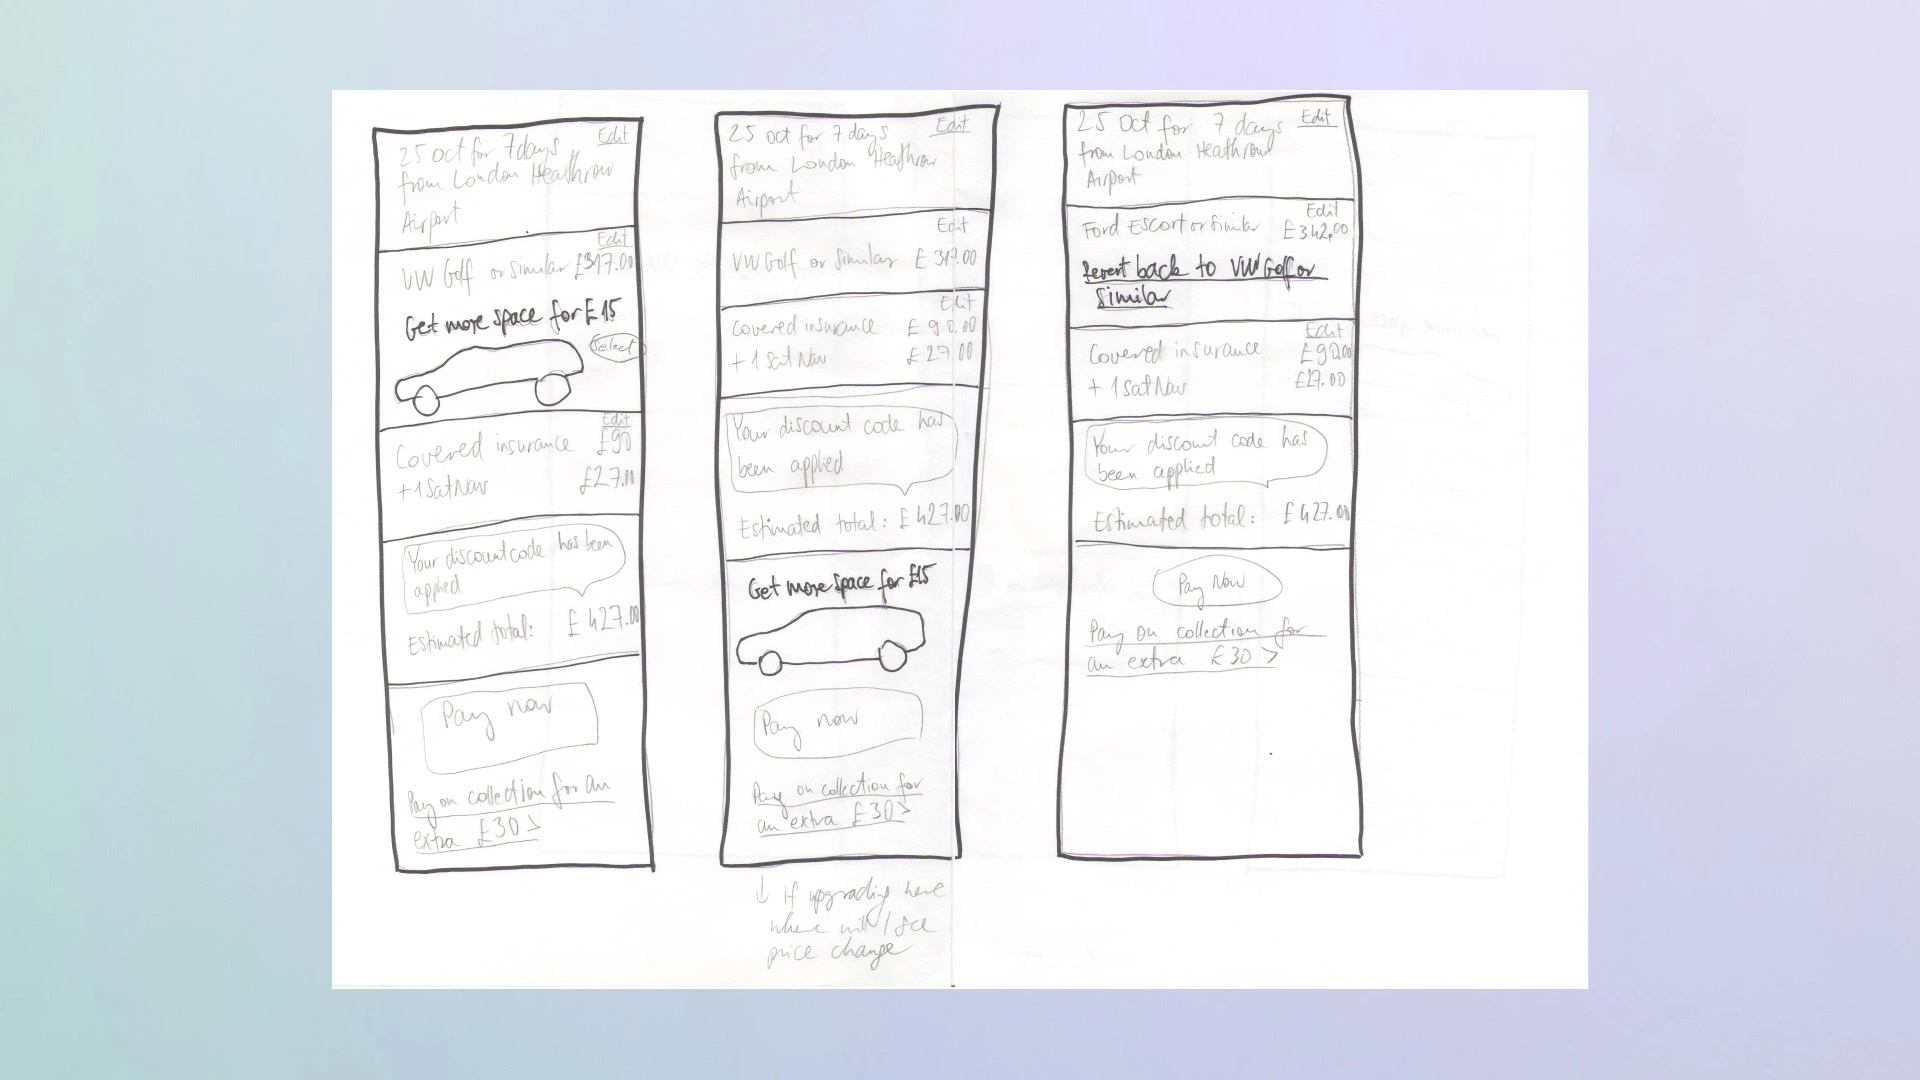 25 Oct for 7 days
Edit
from London Heathrow
Airport
Edit
VW Golf or similar £317.00
Get more space for £15
Select
Edit
Covered insurance £90
+ 1 Sat Nav £27.00
Your discount code has been
applied
Estimated total: £427.00
Pay now
Pay on collection for an
extra £30 >
25 oct for 7 days
Edit
from London Heathrow
Airport
Edit
VW Golf or similar £317.00
Edit
Covered insurance £90.00
+ 1 Sat Nav £27.00
Your discount code has
been applied
Estimated total: £427.00
Get more space for £15
Pay now
Pay on collection for
an extra £30 >
↓ if upgrading here
where will I see
price change
25 Oct for 7 days
Edit
from London Heathrow
Airport
Edit
Ford Escort or similar £342.00
Revert back to VW Golf or
Similar
Edit
Covered insurance £90.00
+ 1 Sat Nav £27.00
Your discount code has
been applied
Estimated total: £427.00
Pay Now
Pay on collection for
an extra £30 >